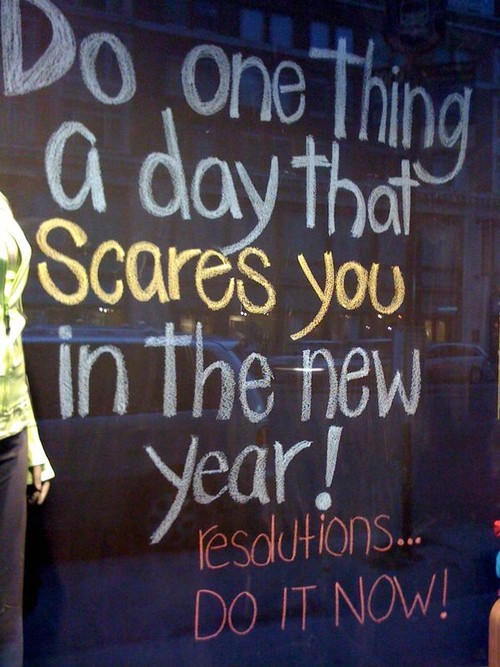 Do one thing
a day that
Scares you
in the new
year!
resolutions...
DO IT NOW!